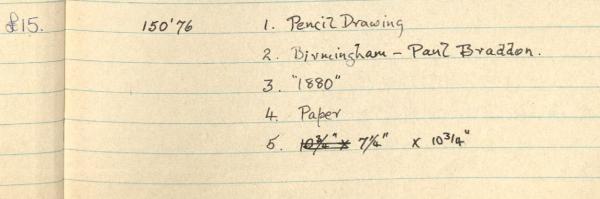 £15. 150'76 1. Pencil Drawing
2. Birmingham - Paul Braddon.
3. "1880"
4. Paper
5. 10¾" x 7¼" x 10¾"